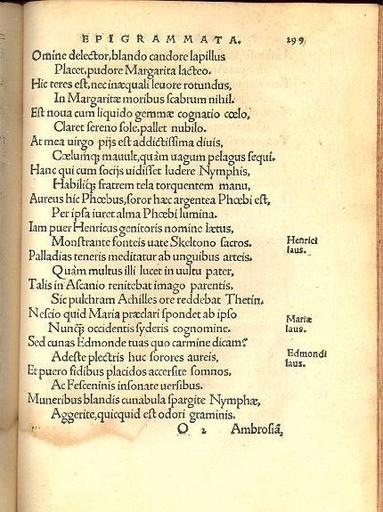 EPIGRAMMATA. 299
Omine delector, blando candore lapillus
Placet, pudore Margarita lacteo.
Hic teres est, nec inæquali leuore rotundus,
In Margaritæ moribus scabrum nihil.
Est noua cum liquido gemmæ cognatio cœlo,
Claret sereno sole, pallet nubilo.
At mea uirgo pijs est addictissima diuis,
Cœlumq; mauult, quàm uagum pelagus sequi.
Hanc qui cum socijs uidisset ludere Nymphis,
Habiliq; fratrem tela torquentem manu,
Aureus hic Phœbus, soror hæc argentea Phœbi est,
Per ipsa iuret alma Phœbi lumina.
Iam puer Henricus genitoris nomine lætus,
Monstrante fonteis uate Skeltono sacros.
Henrici
laus.
Palladias teneris meditatur ab unguibus arteis.
Quàm multus illi lucet in uultu pater,
Talis in Ascanio renitebat imago parentis.
Sic pulchram Achilles ore reddebat Thetin.
Nescio quid Maria præclari spondet ab ipso
Nunq̃ occidentis syderis cognomine.
Mariæ
laus.
Sed cunas Edmonde tuas quo carmine dicam?
Adeste plectris huc sorores aureis,
Edmondi
laus.
Et puero fidibus placidos accersite somnos,
Ac Fesceninis insonate uersibus.
Muneribus blandis cunabula spargite Nymphæ,
Aggerite, quicquid est odori graminis.
O 2 Ambrosiã,